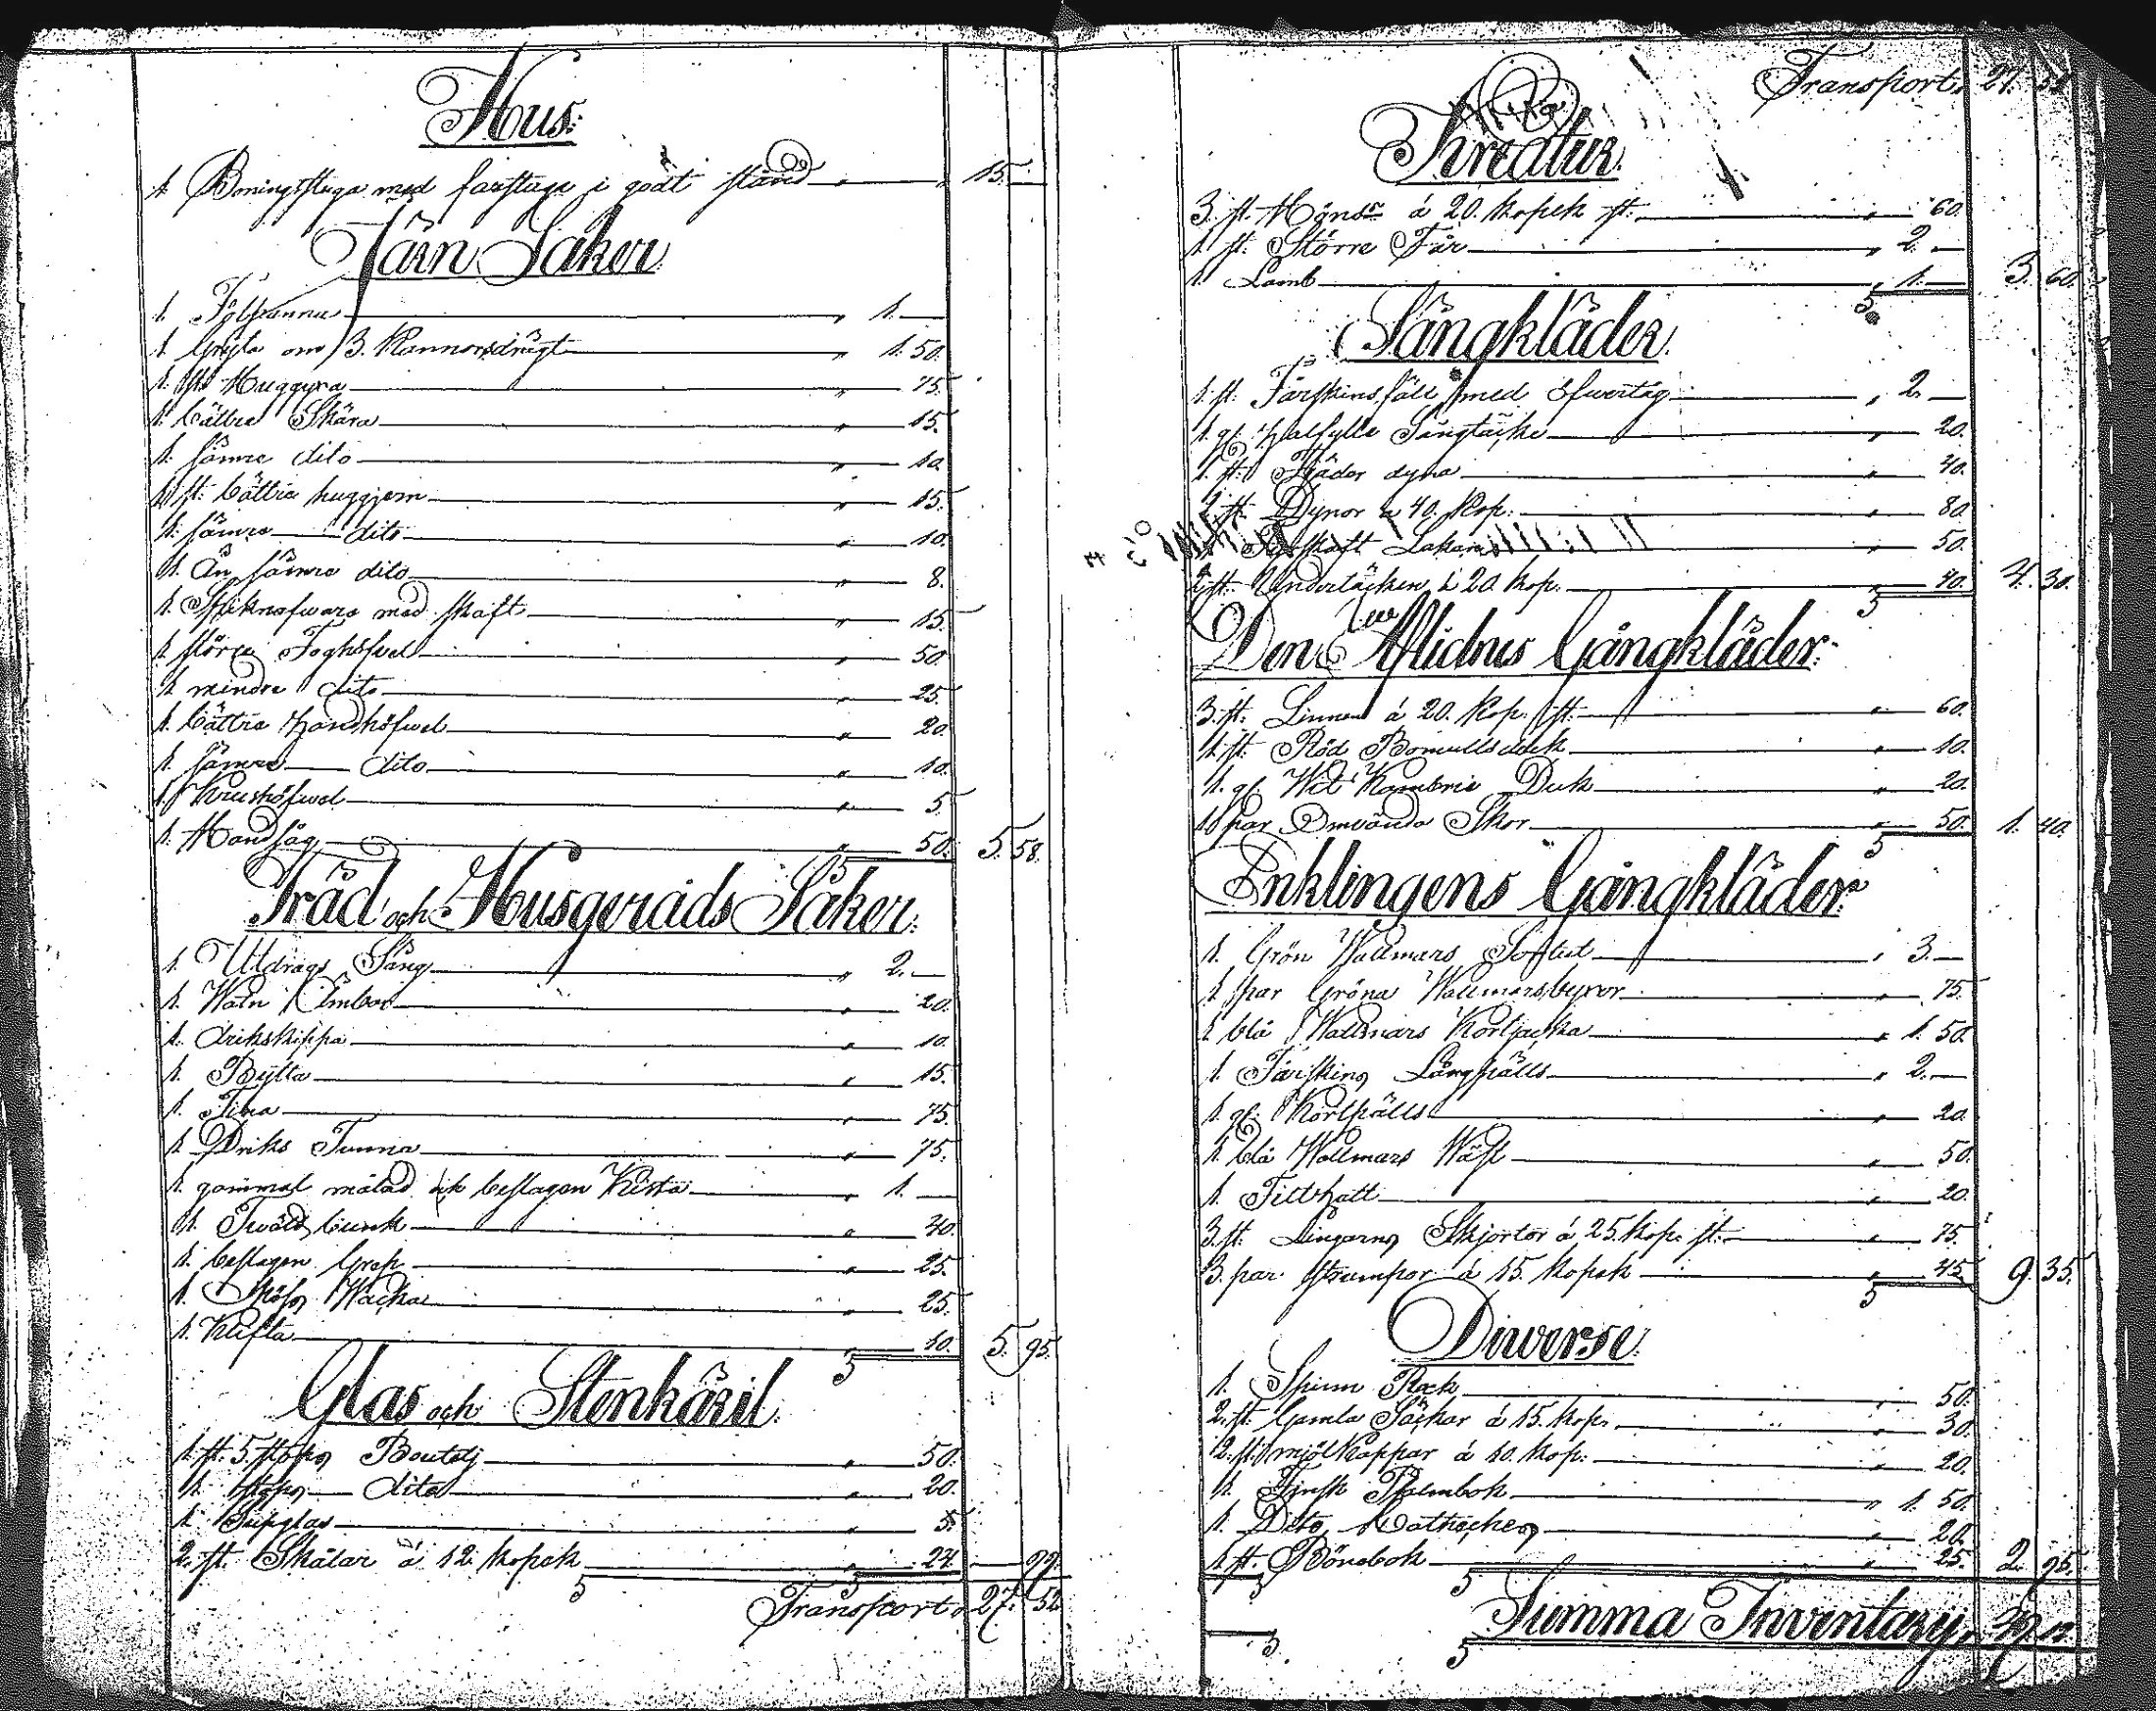 Hus:
1. Boningsstuga med farstuga i godt stånd „ 15. —
Järn Saker
1. Fältpanna „ 1. —
1. Gryta om 3. Kannorsdrägt „ 1. 50.
1. st. Huggyxa „ 75.
1. bättre Skära „ 15.
1. sämre dito „ 10.
1. st. bättre huggjern „ 15.
1. sämre dito „ 10.
1. Än sämre dito „ 8.
1. med skaft „ 15.
1. större Foghöfvel „ 50.
1. mindre dito „ 25.
1. bättre handhöfwel „ 20.
1. sämre dito „ 10.
1. Krushöfwel „ 5.
1. Handsåg „ 50. 5. 58.
Träd och Husgeråds Saker:
1. Utdrags Säng „ 2. —
1. Watn Ämbar „ 20.
1. drikskippa „ 10.
1. Bytta „ 15.
1. Tina „ 75.
1. Driks Tunna „ 75.
1. gammal målad och beslagen Kista „ 1. —
1. Twätt bunk „ 40.
1. beslagen Grep „ 25.
1. Wacka „ 25.
1. Klifta „ 10. 5. 95.
Glas och Stenkäril
1. st. 5. stops Boutelj „ 50.
1. stops dito „ 20.
1. Supglas „ 5.
2. st. Skålar á 12 kopek „ 24. — 99.
Transport „ 27. 52
Transport „ 27. 52
Kreatur.
3. st. Höns á 20. kopek st. „ 60.
1. st. Större Får „ 2. —
1. Lamb „ 1. — 3. 60.
Sängkläder.
1. st. Fårskinsfäll med öfwertåg „ 2. —
1. gl. halfylle Sängtäcke „ 20.
1. st. Fjäder dyna „ 40.
2. st. Dynor á 40. Kop. „ 80.
Lakan „ 50.
2. st. Undertäcken á 20. kop. „ 40. 4. 30.
Den Aflidnes Gångkläder:
3. st. Linnen á 20. Kop. st. „ 60.
1. st. Röd Bomullsduk „ 10.
1. gl. Wit Kambric Duk „ 20.
1. par Omvända Skor „ 50. 1. 40.
Enklingens Gångkläder
1. Grön Wallmars Sortut „ 3. —
1. par Gröna Wallmarsbyxor „ 75.
1. blå Wallmars Kortjacka „ 1. 50.
1. Fårskins Långpälls „ 2. —
1. gl. Kortpälls „ 20.
1. blå Wallmars Wäst „ 50.
1. Filthatt „ 20.
3. st. Lingarns Skjortor á 25. kop. st. „ 75.
3. par strumpor á 15. kopek „ 45. 9. 35.
Diverse.
1. Spinn Rock 50.
2. st. Gamla Säckar á 15. kop. „ 30.
2. st. mjölkappar á 10. kop. „ 20.
1. Finsk Psalmbok „ 1. 50.
1. Dito „ 20.
1. st. Bönebok „ 25. 2. 95.
Summa Inventary „ 12.